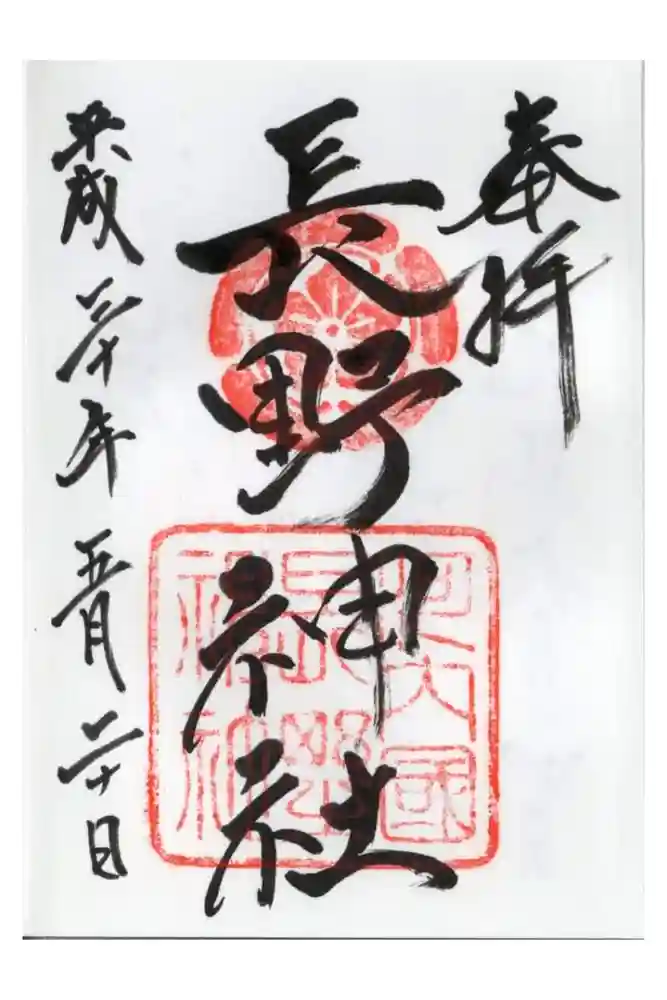 奉拝
長野神社
平成三十年五月二十日